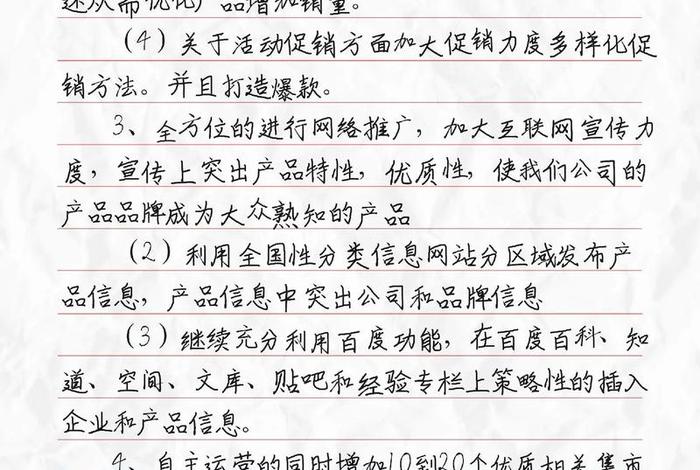 述从而优化产品增加销量。
(4)关于活动促销方面加大促销力度多样化促
销方法。并且打造爆款。
3、全方位的进行网络推广，加大互联网宣传力
度，宣传上突出产品特性，优质性，使我们公司的
产品品牌成为大众熟知的产品
(2)利用全国性分类信息网站分区域发布产
品信息，产品信息中突出公司和品牌信息
(3)继续充分利用百度功能，在百度百科、知
道、空间、文库、贴吧和经验专栏上策略性的插入
企业和产品信息。
4、自主运营的同时增加10到20个优质相关集市